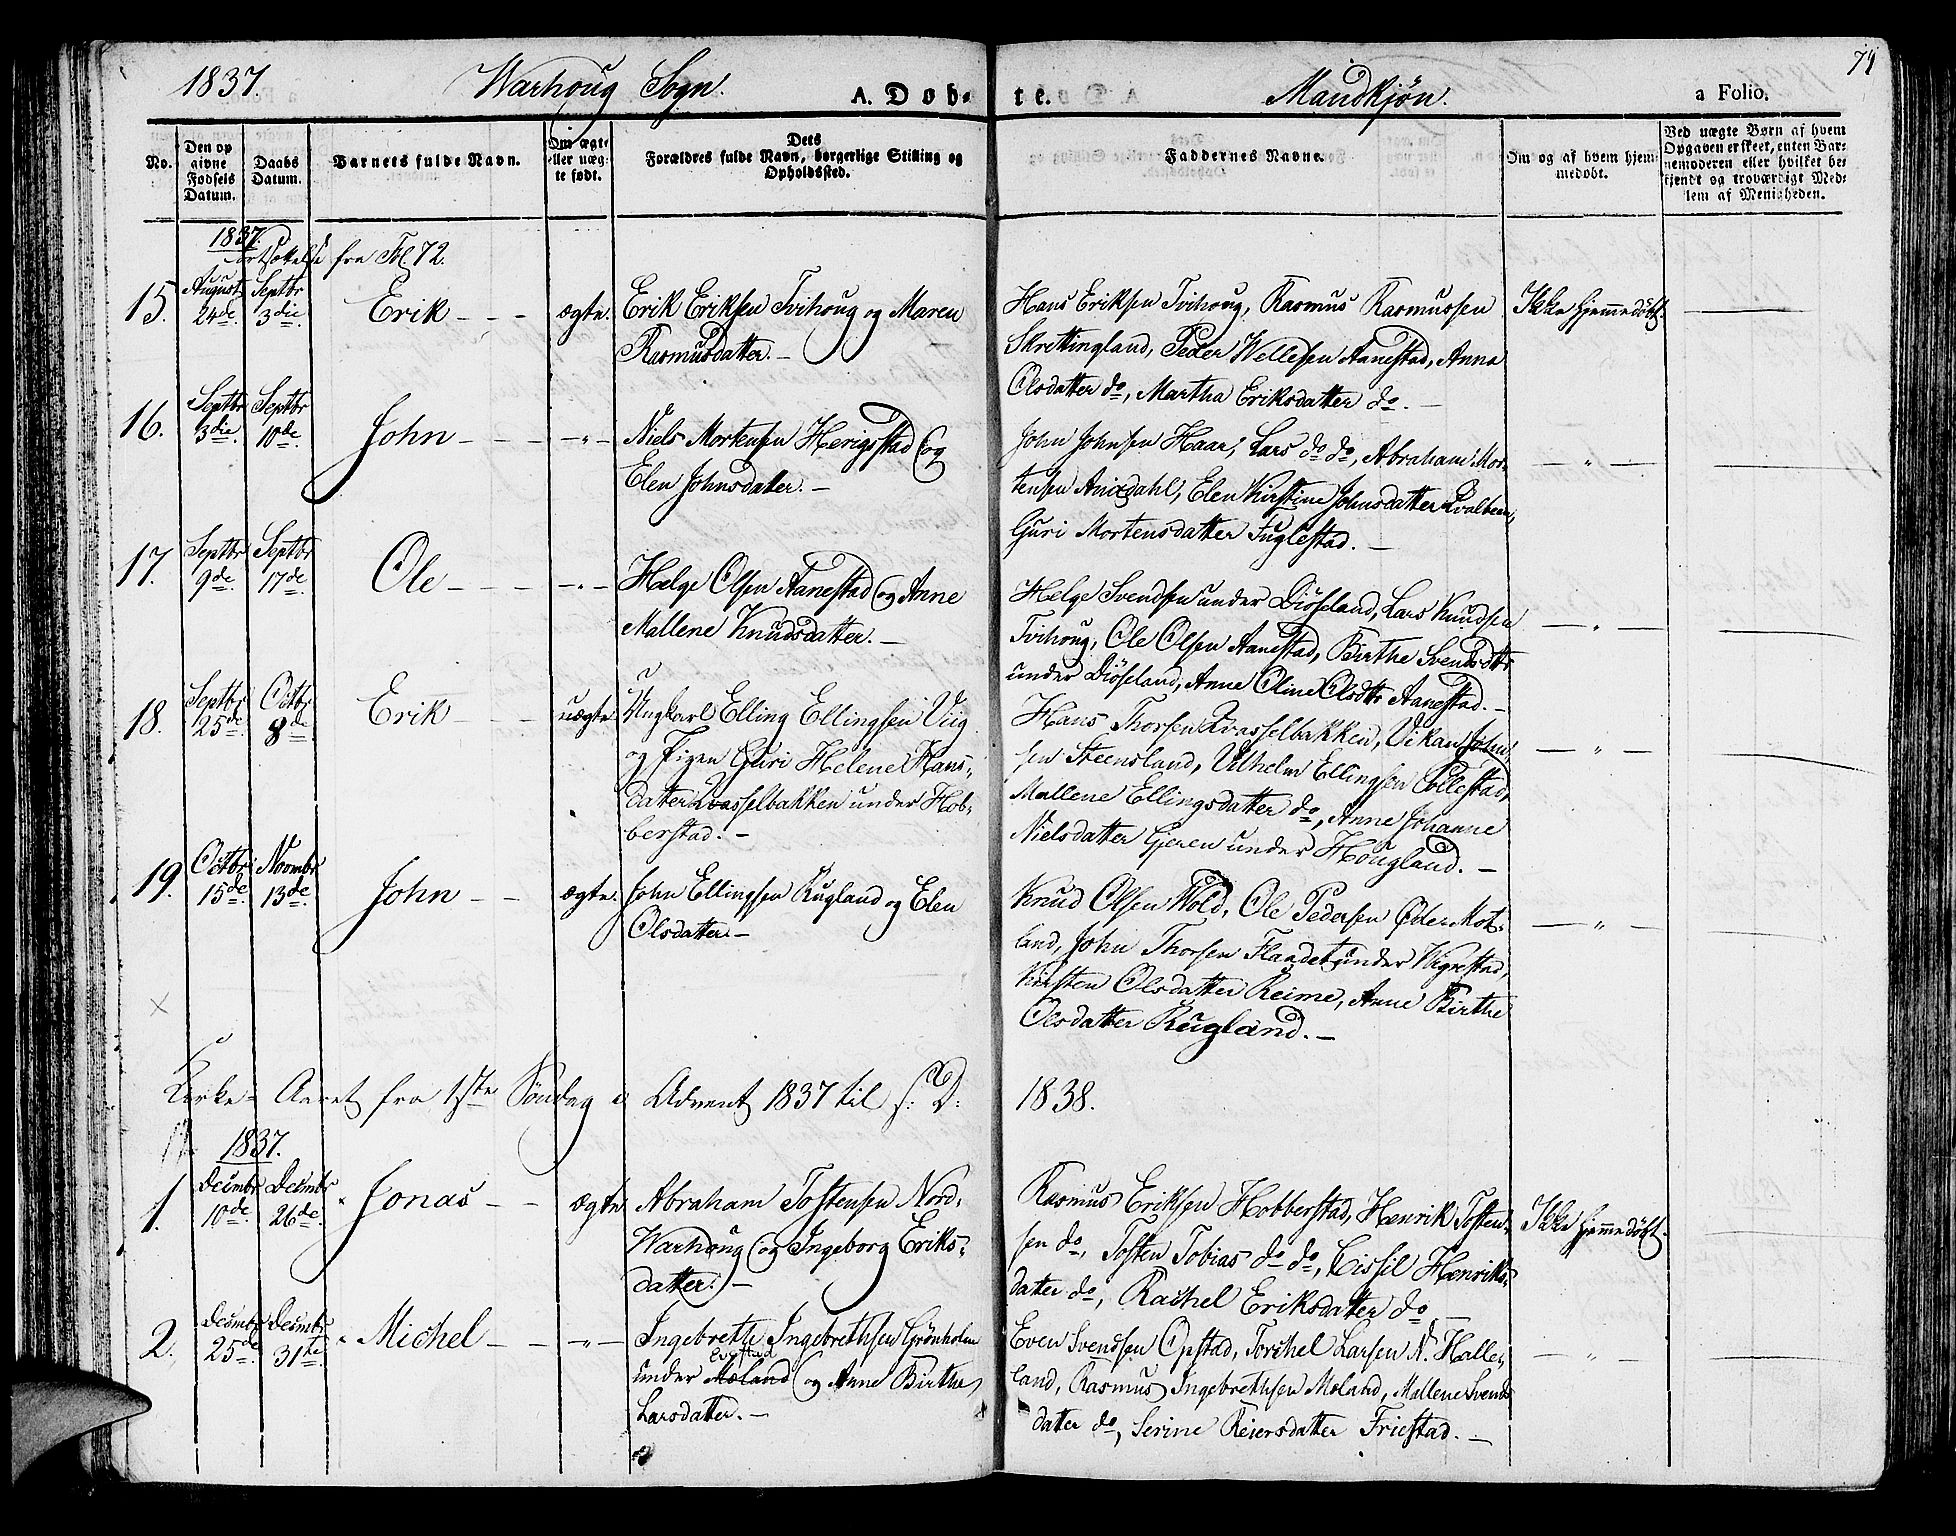 1837. Warhoug Sogn. A. Døb- te. Mandkjøn. a Folio. 74
No.
Den op givne Fødsels Datum.
Daabs Datum.
Barnets fulde Navn.
Om ægte eller uægte født.
Dets Forældres fulde Navn, borgerlige Stilling og Opholdssted.
Faddernes Navne.
Om og af hvem hjemmedøbt.
Ved uægte Børn af hvem Opgaven er skeet, enten Barnemoderen eller hvilket bekjendt og troværdigt Medlem af Menigheden.
1837. Fortsættelse fra Fol. 72.
15. August 24de. Septbr 3die. Erik - - - ægte.
Erik Eriksen Tvihoug og Maren
Rasmusdatter. -
Hans Eriksen Tvihoug, Rasmus Rasmussen
Skrettingland, Peder Wellesen Aanestad, Anna
Olsdatter do, Martha Eriksdatter do. -
Ikke hjemmedøbt.
16. Septbr 3die. Septbr 10de. John - - - - " -
Niels Mortensen Herigstad og
Elen Johnsdatter. -
John Johnsen Haar, Lars do do, Abraham Mor-
tensen Anixdahl, Elen Kirstine Johnsdatter Qvalbein,
Guri Mortensdatter Fuglestad. -
- " -
17. Septbr 9de. Septbr 17de. Ole - - - - " -
Helge Olsen Aanestad og Anne
Mallene Knudsdatter. -
Helge Svendsen under Diöseland, Lars Knudsen
Tvihoug, Ole Olsen Aanestad, Birthe Svendsdtr
under Diöseland, Anne Oline Olsdtr Aanestad. -
- " -
18. Septbr 25de. Octbr 8de. Erik - - - uægte.
Ungkarl Elling Ellingsen Viig
og Pigen Guri Helene Hans-
datter Qvasselbakken under Hob-
berstad. -
Hans Thorsen Qvasselbakken, Vikan John-
sen Steensland, Vilhelm Ellingsen Pollestad,
Mallene Ellingsdatter do, Anne Johanne
Nielsdatter Gjeren under Hougland. -
- " -
19. Octbr 15de. Novmbr 13de. John - - ægte.
John Ellingsen Rugland og Elen
Olsdatter. -
Knud Olsen Wold, Ole Pedersen Øder Mot-
land, John Thorsen Flaadet under Wigrestad,
Kirsten Olsdatter Reime, Anne Birthe
Olsdatter Rugland. -
- " -
Kirke-Aaret fra 1ste Søndag i Advent 1837 til s: D: 1838.
1837.
1. Decmbr 10de. Decmbr 26de. Jonas - - ægte
Abraham Tostensen Nord-
Warhoug og Ingeborg Eriks-
datter. -
Rasmus Eriksen Hobberstad, Henrik Tosten-
sen do, Tosten Tobias do do, Cissil Henriks-
datter do, Rachel Eriksdatter do
Ikke hjemmedøbt.
2. Decmbr 25de. Decmbr 31te. Michel - - - " -
Ingebreth Ingebrethsen Grönholm
under Moland og Anne Birthe
Larsdatter. -
Even Svendsen Opstad, Torchel Larsen N. Halle-
land, Rasmus Ingebrethsen Moland, Mallene Svends-
datter do, Serine Reiersdatter Friestad. -
- " -